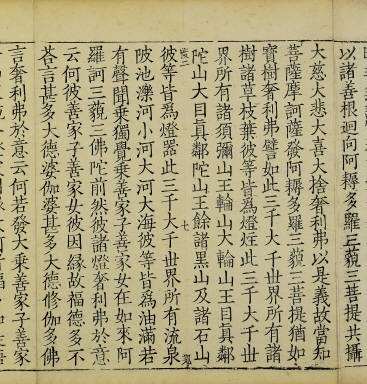 以諸善根迴向阿耨多羅三藐三菩提共攝
大慈大悲大喜大捨奢利弗以是義故當知
菩薩摩訶薩發阿耨多羅三藐三菩提猶如
寶樹奢利弗譬如此三千大千世界所有
樹諸草枝葉彼等皆為燈炷此三千大千世
界所有諸須彌山王輪山大輪山王目真鄰
陀山大目真鄰陀山王餘諸黑山及諸石山
七
彼等皆為燈器此三千大千世界所有流泉
陂池濼河小河大河大海彼等皆為油滿若
有聲聞乘獨覺乘善家子善家女在如來阿
羅訶三藐三佛陀前然彼諸燈奢利弗於意
云何彼善家子善家女彼因緣故福德多不
荅言甚多大德婆伽婆甚多大德修伽多佛
言奢利弗於意云何若發大乘善家子善家